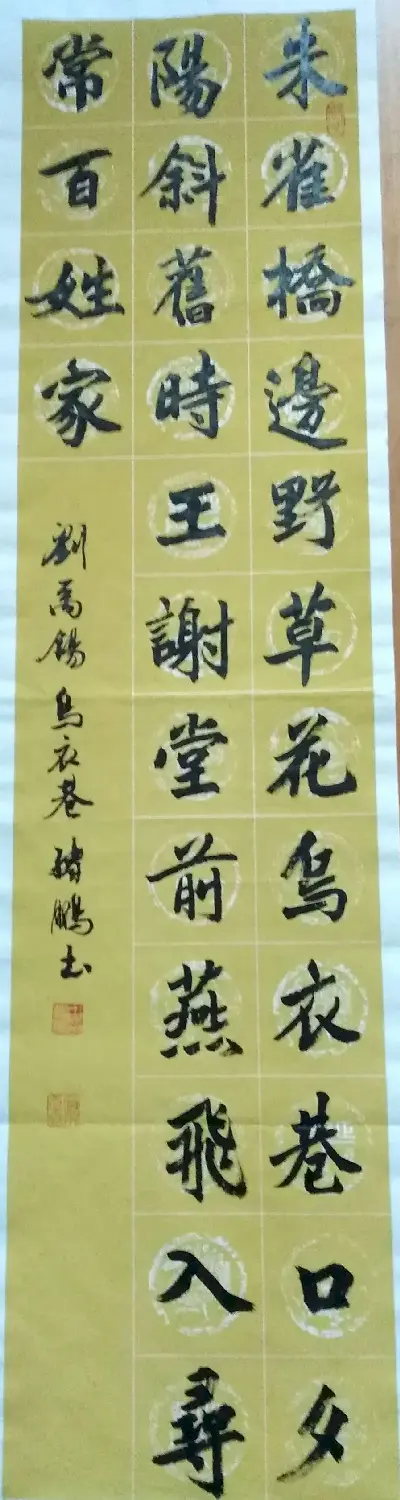 朱雀橋邊野草花烏衣巷口夕
陽斜舊時王謝堂前燕飛入尋
常百姓家
劉禹錫烏衣巷 鵬書